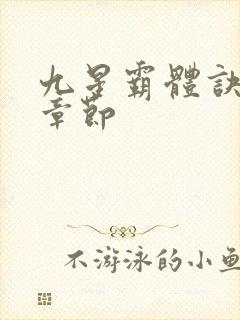 九星霸體訣
章節
不游泳的小魚